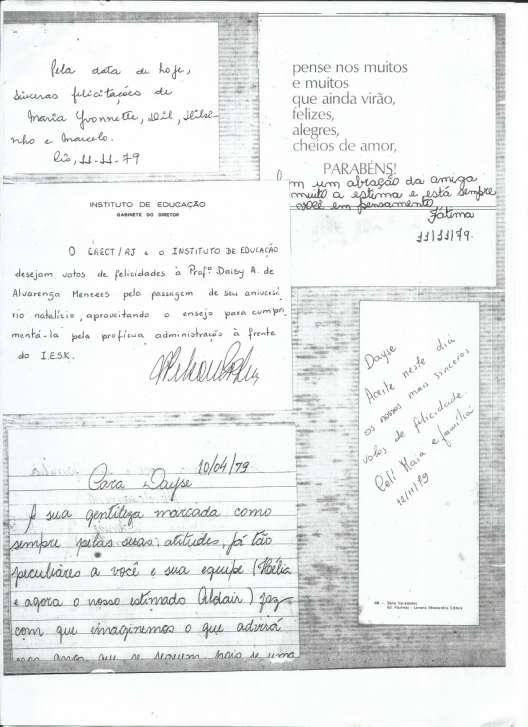 Pela data de hoje,
sinceras felicitações de
Maria Yvonnette, Hil, Hilse-
nho e Marcelo.
Rio, 11-11-79
pense nos muitos
e muitos
que ainda virão,
felizes,
alegres,
cheios de amor,
PARABÉNS!
m um abração da amiga
muito a estima e está sempre
você em pensamento
Fátima
11/11/79.
INSTITUTO DE EDUCAÇÃO
GABINETE DO DIRETOR
O CRECT/RJ e o INSTITUTO DE EDUCAÇÃO
desejam votos de felicidades à Profª Daisy A. de
Alvarenga Menezes pela passagem de seu aniversá
rio natalício, aproveitando o ensejo para cumpri
mentá-la pela profícua administração à frente
do I.E.S.K.
Dayse
Aceite neste dia
os nossos mais sinceros
votos de felicidade.
Celi Maia e família
12/11/79
10/04/79
Cara Dayse
A sua gentileza marcada como
sempre pelas suas atitudes, já tão
peculiares a você e sua equipe (Hélia
e agora o nosso estimado Aldair) faz
com que imaginemos o que advirá